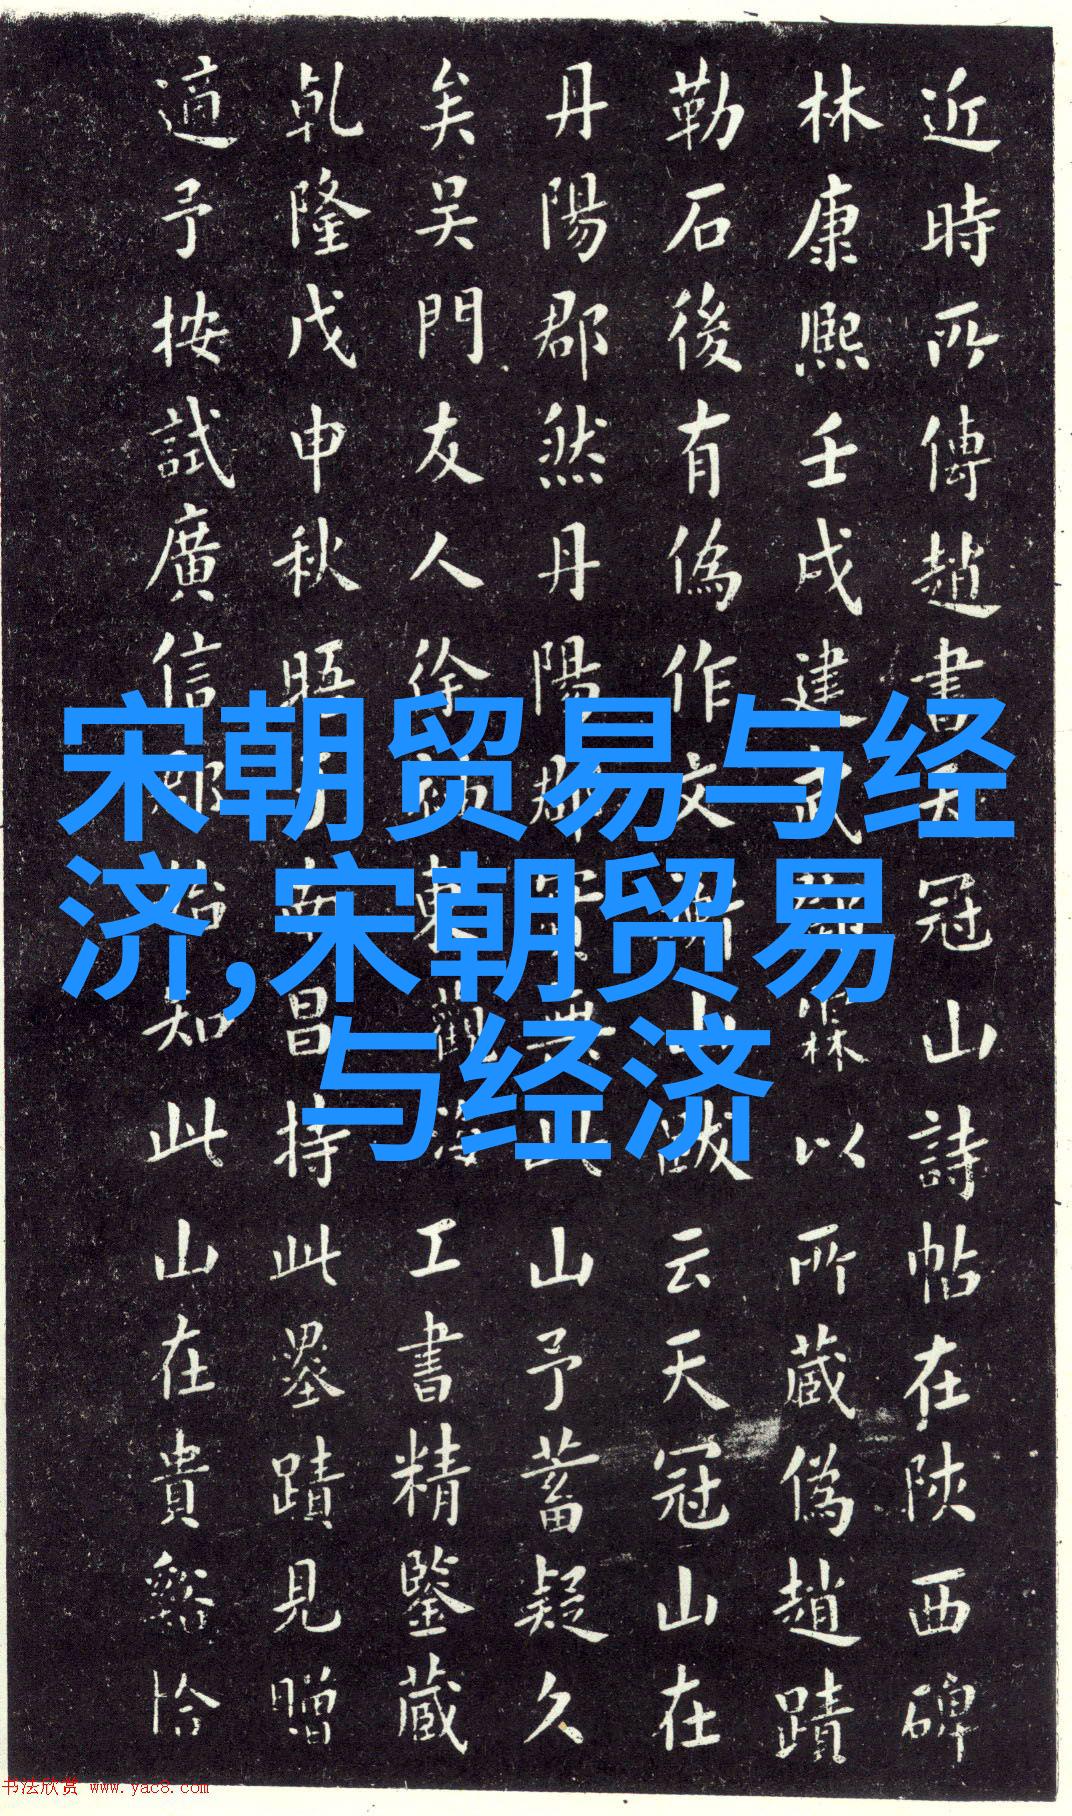 近時所傳趙書天冠山詩帖在陝西碑
林康熙壬戌建武霖以所藏偽趙蹟
勒石後有偽作文衡山跋云天冠山在
丹陽郡然丹陽郡實無此山予蓄疑久
矣吳門友人徐觀海工書精鑒藏
乾隆戊申秋晤于南昌持此墨蹟見贈
適予按試廣信郡始知此山在貴谿恰
宋朝贸易与经
济,宋朝贸易
与经济
书法欣赏 www.yac8.com